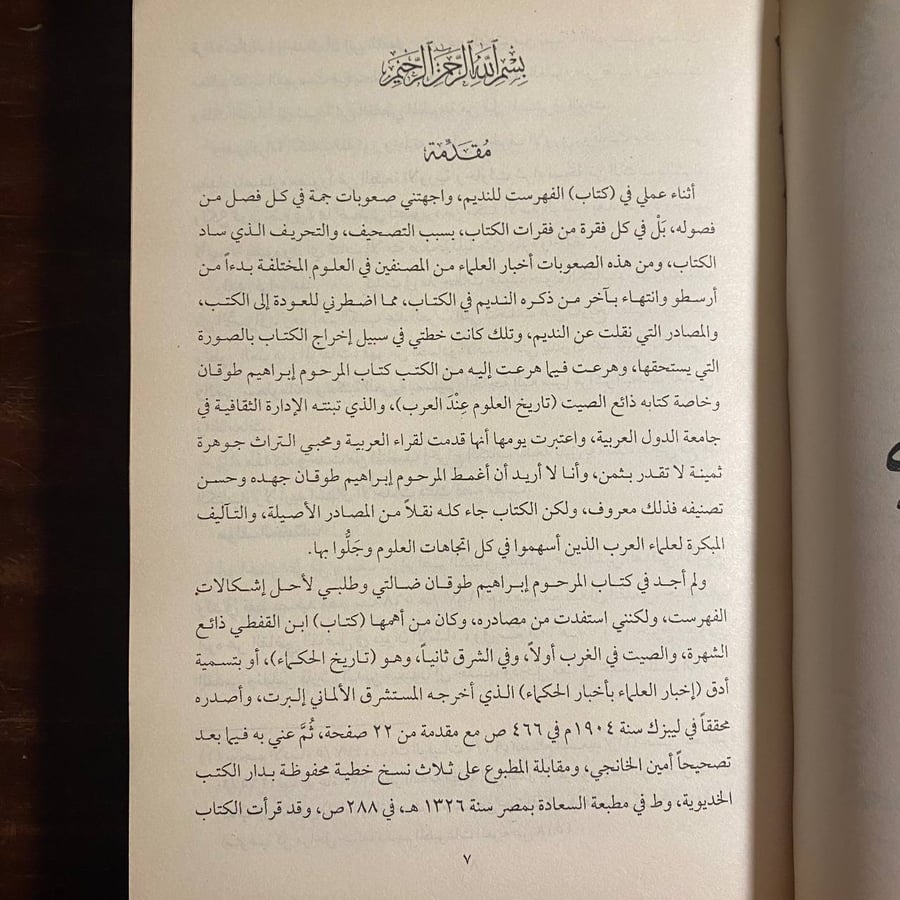 بسم الله الرحمن الرحيم
مُقَدِّمة
أثناء عملي في (كتاب) الفهرست للنديم، واجهتني صعوبات جمة في كل فصل من
فصوله، بَلْ في كل فقرة من فقرات الكتاب، بسبب التصحيف، والتحريف الذي ساد
الكتاب، ومن هذه الصعوبات أخبار العلماء من المصنفين في العلوم المختلفة بدءاً من
أرسطو وانتهاء بآخر من ذكره النديم في الكتاب، مما اضطرني للعودة إلى الكتب،
والمصادر التي نقلت عن النديم، وتلك كانت خطتي في سبيل إخراج الكتاب بالصورة
التي يستحقها، وهرعت فيما هرعت إليه من الكتب كتاب المرحوم إبراهيم طوقان
وخاصة كتابه ذائع الصيت (تاريخ العلوم عِنْدَ العرب)، والذي تبنته الإدارة الثقافية في
جامعة الدول العربية، واعتبرت يومها أنها قدمت لقراء العربية ومحبي التراث جوهرة
ثمينة لا تقدر بثمن، وأنا لا أريد أن أغمط المرحوم إبراهيم طوقان جهده وحسن
تصنيفه فذلك معروف، ولكن الكتاب جاء كله نقلاً من المصادر الأصيلة، والتآليف
المبكرة لعلماء العرب الذين أسهموا في كل اتجاهات العلوم وجَلُّوا بها.
ولم أجد في كتاب المرحوم إبراهيم طوقان ضالتي وطلبي لأحل إشكالات
الفهرست، ولكنني استفدت من مصادره، وكان من أهمها (كتاب) ابن القفطي ذائع
الشهرة، والصيت في الغرب أولاً، وفي الشرق ثانياً، وهو (تاريخ الحكماء)، أو بتسمية
أدق (إخبار العلماء بأخبار الحكماء) الذي أخرجه المستشرق الألماني إلبرت، وأصدره
محققاً في ليبزك سنة ١٩٠٤م في ٤٦٦ ص مع مقدمة من ٢٢ صفحة، ثُمَّ عني به فيما بعد
تصحيحاً أمين الخانجي، ومقابلة المطبوع على ثلاث نسخ خطية محفوظة بدار الكتب
الخديوية، وط في مطبعة السعادة بمصر سنة ١٣٢٦ هـ، في ٢٨٨ص، وقد قرأت الكتاب
٧